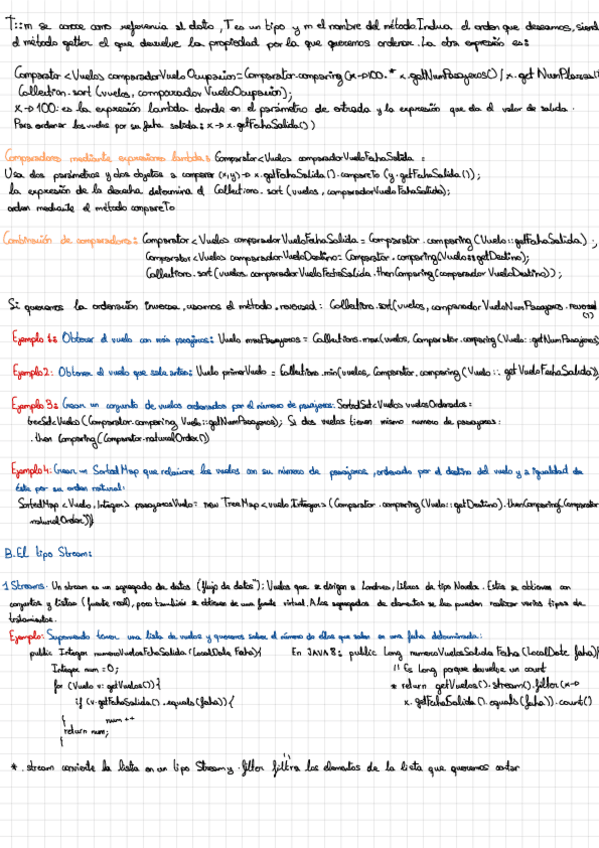 T::m se conoce como referencia al dato, T es un tipo y m el nombre del método. Indica el orden que deseamos, siend
el método getter el que devuelve la propiedad por la que queremos ordenar. La otra expresión es:
Comparator <Vuelo> comparadorVueloOcupacion = Comparator.comparing (x->100. * x.getNumPasajeros() / x.get NumPlazas()
Collection.sort (vuelos, comparador VueloOcupacion);
x->100: es la expresión lambda donde en el parámetro de entrada y la expresión que da el valor de salida.
Para ordenar los vuelos por su fecha salida: x -> x.getFechaSalida()
Comparadores mediante expresiones lambda: Comparator<Vuelo> comparadorVueloFechaSalida =
Usa dos parámetros y dos objetos a comparar (x,y)-> x.getFechaSalida().compareTo (y.getFechaSalida());
la expresión de la derecha determina el Collections.sort (vuelos, comparadorVueloFechaSalida);
orden mediante el método compareTo
Combinación de comparadores: Comparator<Vuelo> comparadorVueloFechaSalida = Comparator.comparing (Vuelo::getFechaSalida);
Comparator<Vuelo> comparadorVueloDestino= Comparator.comparing(Vuelo::getDestino);
Collections.sort (vuelos, comparadorVueloFechaSalida.thenComparing(comparador VueloDestino));
Si queremos la ordenación inversa, usamos el método .reversed: Collections.sort(vuelos, comparadorVueloNumPasajeros.reversed
())
Ejemplo 1: Obtener el vuelo con más pasajeros: Vuelo maxPasajeros = Collections.max(vuelos, Comparator.comparing (Vuelo::getNumPasajeros)
Ejemplo 2: Obtener el vuelo que sale antes: Vuelo primerVuelo = Collections.min(vuelos, Comparator.comparing (Vuelo::getVueloFechaSalida))
Ejemplo 3: Crear un conjunto de vuelos ordenados por el número de pasajeros: SortedSet<Vuelo> vuelosOrdenados=
treeSet<Vuelo> (Comparator.comparing Vuelo::getNumPasajeros); Si dos vuelos tienen mismo numero de pasajeros:
.then Comparing (Comparator.naturalOrder())
Ejemplo 4: Crear un SortedMap que relacione los vuelos con su número de pasajeros, ordenado por el destino del vuelo y a igualdad de
éste por su orden natural:
SortedMap <Vuelo, Integer> pasajerosVuelo = new TreeMap <vuelo, Integer> (Comparator.comparing (Vuelo::getDestino).thenComparing(Comparator
naturalOrder))
B. El tipo Stream:
1 Streams. Un stream es un agregado de datos ("flujo de datos"): Vuelos que se dirigen a Londres, Libros de tipo Novela. Estos se obtienen con
conjuntos y listas (fuente real), pero también se obtienen de una fuente virtual. A los agregados de elementos se les pueden realizar varios tipos de
tratamientos.
Ejemplo: Suponiendo tener una lista de vuelos y queremos saber el número de ellos que salen en una fecha determinada:
public Integer numeroVuelosFechaSalida (LocalDate Fecha){ En JAVA8: public Long numeroVuelosSalida Fecha (LocalDate fecha){
Integer num = 0; // Es Long porque devuelve un count
for (Vuelo v: getVuelos()){ * return getVuelos().stream().filter(x->
if (v.getFechaSalida().equals(fecha)){ x.getFechaSalida().equals(fecha)).count()
} num ++
return num;
}
* .stream convierte la lista en un tipo Stream y .filter filtra los elementos de la lista que queremos contar